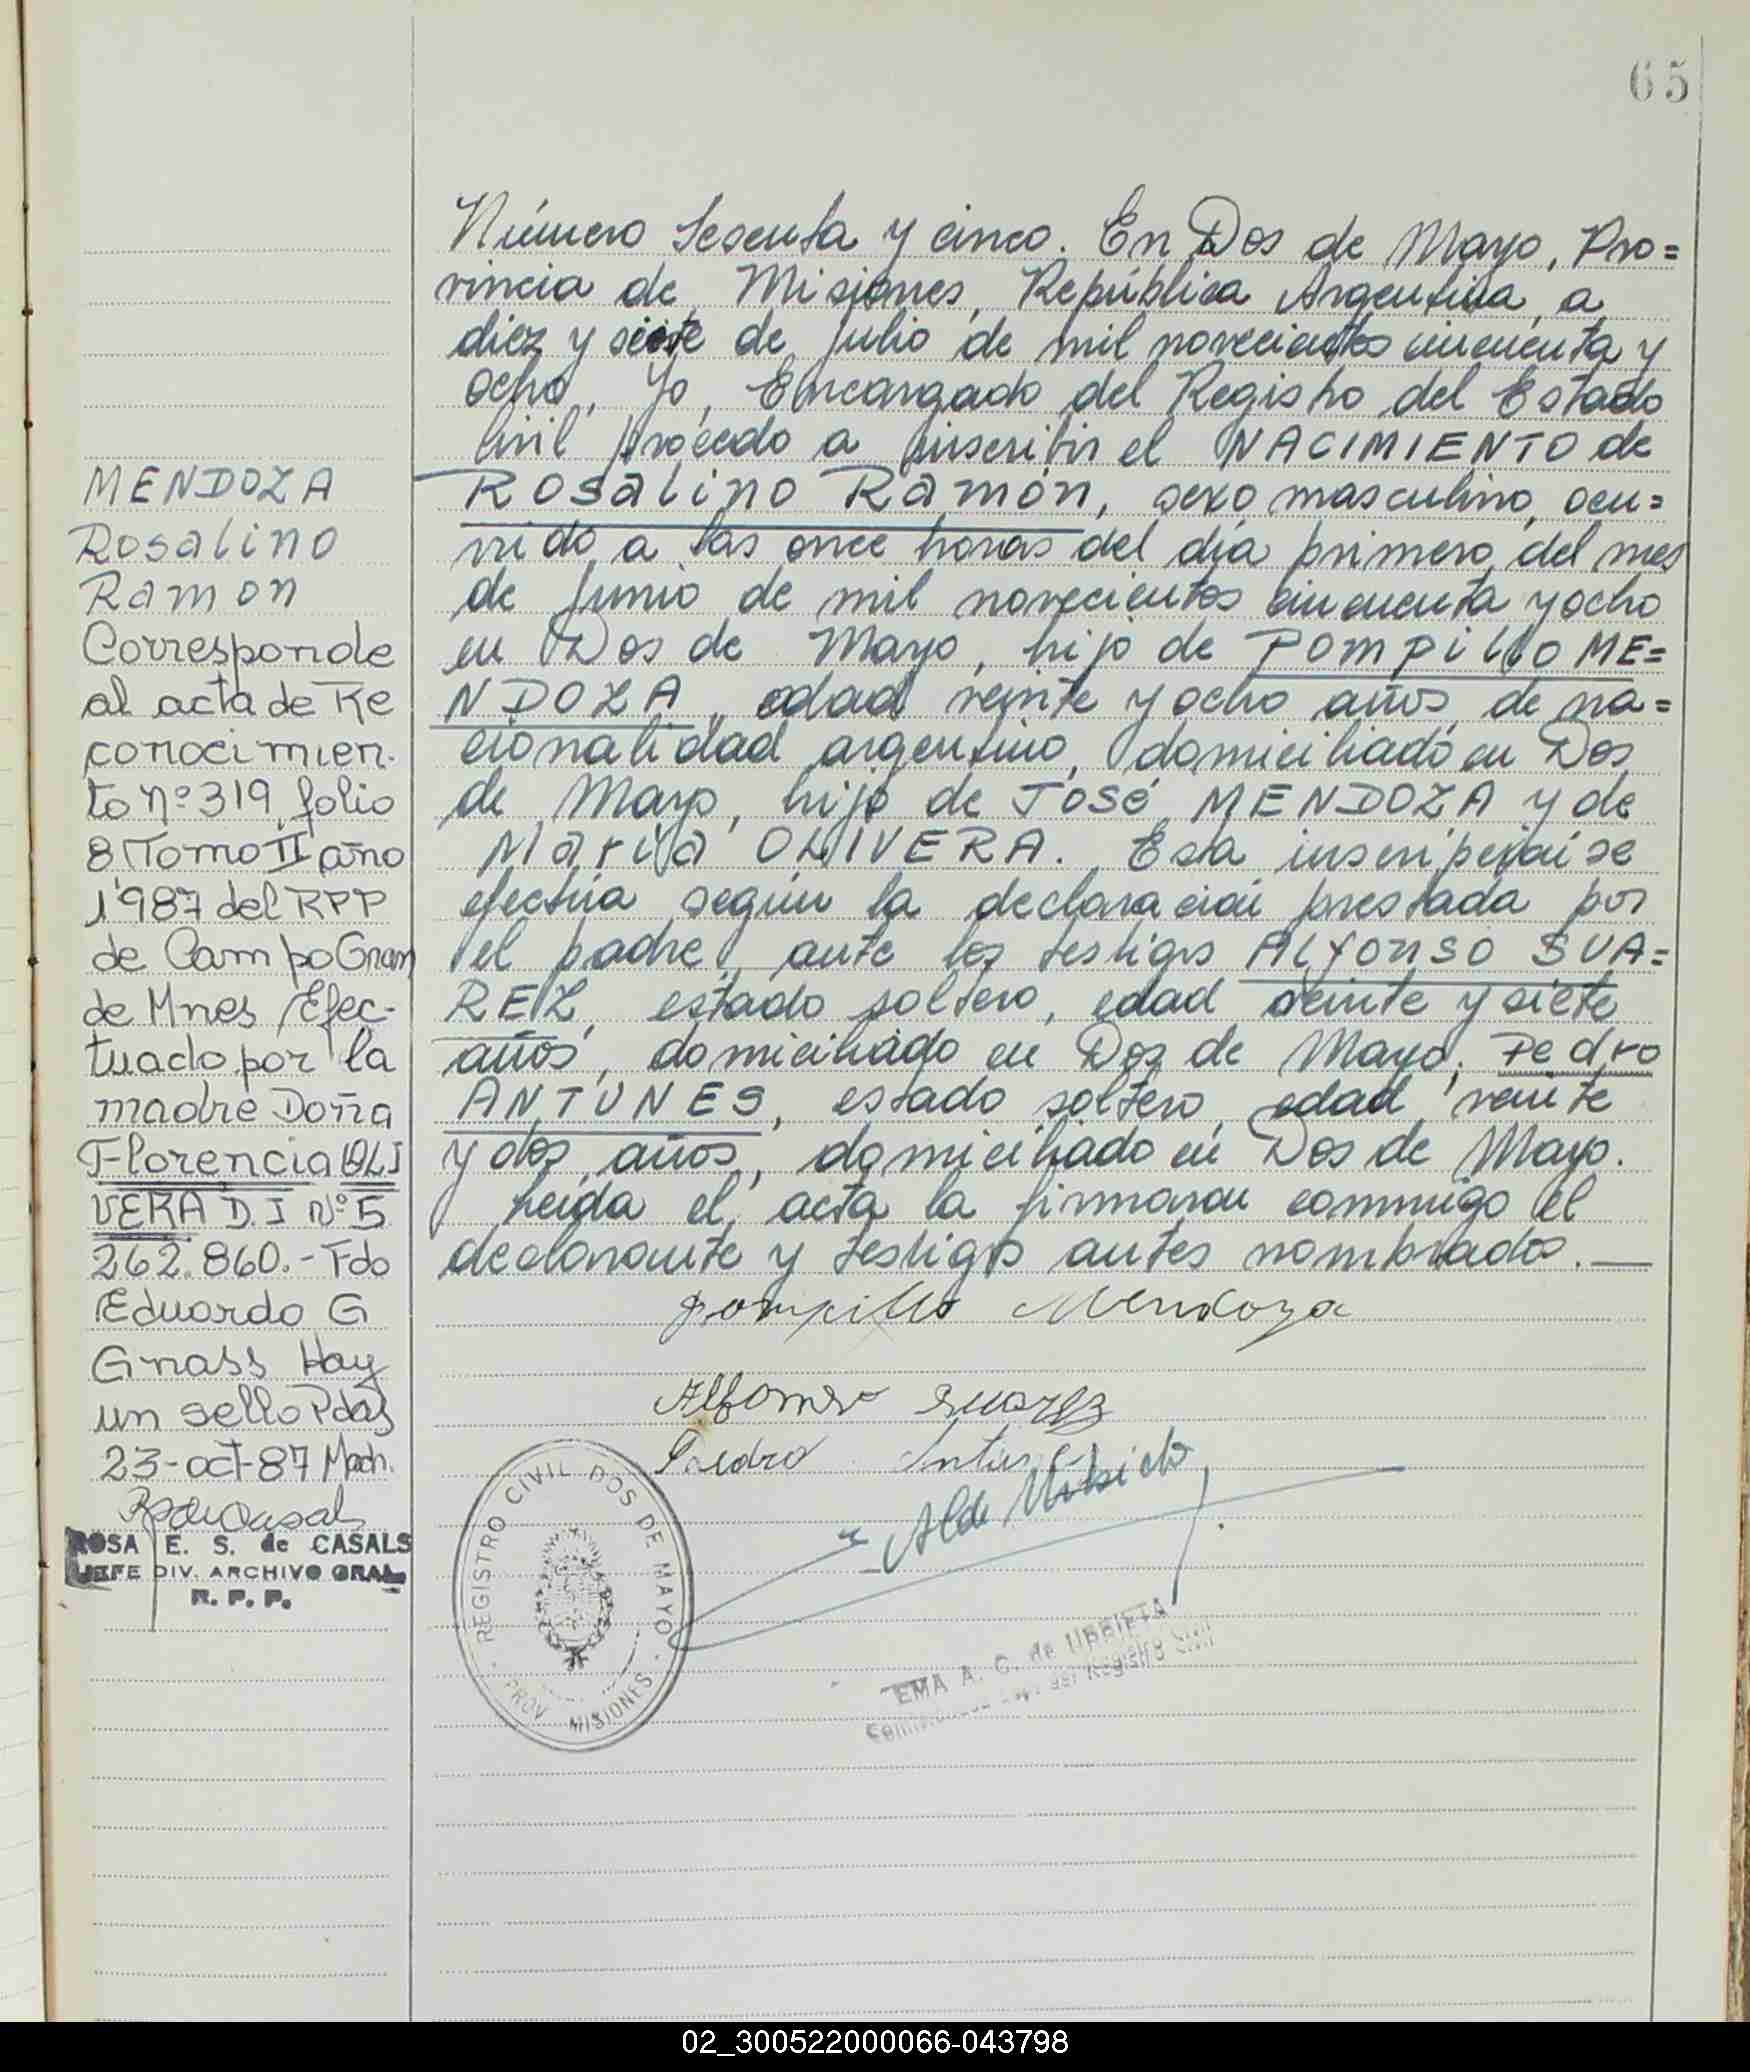 65
Número Sesenta y cinco. En Dos de Mayo, Pro=
vincia de Misiones, República Argentina, a
diez y siete de julio de mil novecientos cincuenta y
ocho, Yo, Encargado del Registro del Estado
Civil procedo a inscribir el NACIMIENTO de
Rosalino Ramón, sexo masculino, ocu=
rrido a las once horas del día primero del mes
de Junio de mil novecientos cincuenta y ocho
en Dos de Mayo, hijo de Pompilio ME=
NDOZA, edad veinte y ocho años, de na=
cionalidad argentino, domiciliado en Dos
de Mayo, hijo de José MENDOZA y de
Maria OLIVERA. Esta inscripción se
efectúa según la declaración prestada por
el padre, ante los testigos Alfonso SUA=
REZ, estado soltero, edad veinte y siete
años, domiciliado en Dos de Mayo; Pedro
ANTUNES, estado soltero, edad veinte
y dos años, domiciliado en Dos de Mayo.
Leida el acta la firmaron conmigo el
declarante y testigos antes nombrados.—
Pompilio Mendoza
Alfonso Suarez
Pedro Antunes
A de Urbieta
REGISTRO CIVIL DOS DE MAYO
PROV. MISIONES
EMA A. G. de URBIETA
del Registro Civil
MENDOZA
Rosalino
Ramon
Corresponde
al acta de Re
conocimien-
to Nº 319, folio
8 Tomo II año
1987 del RPP
de Campo Gran
de Mnes, Efec-
tuado por la
madre Doña
Florencia OLI
VERA D.I Nº 5
262.860.- Fdo
Eduardo G
Gnass Hay
un sello Pdas
23-oct-87
ROSA E. S. de CASALS
JEFE DIV. ARCHIVO GRAL
R. P. P.
02_300522000066-043798